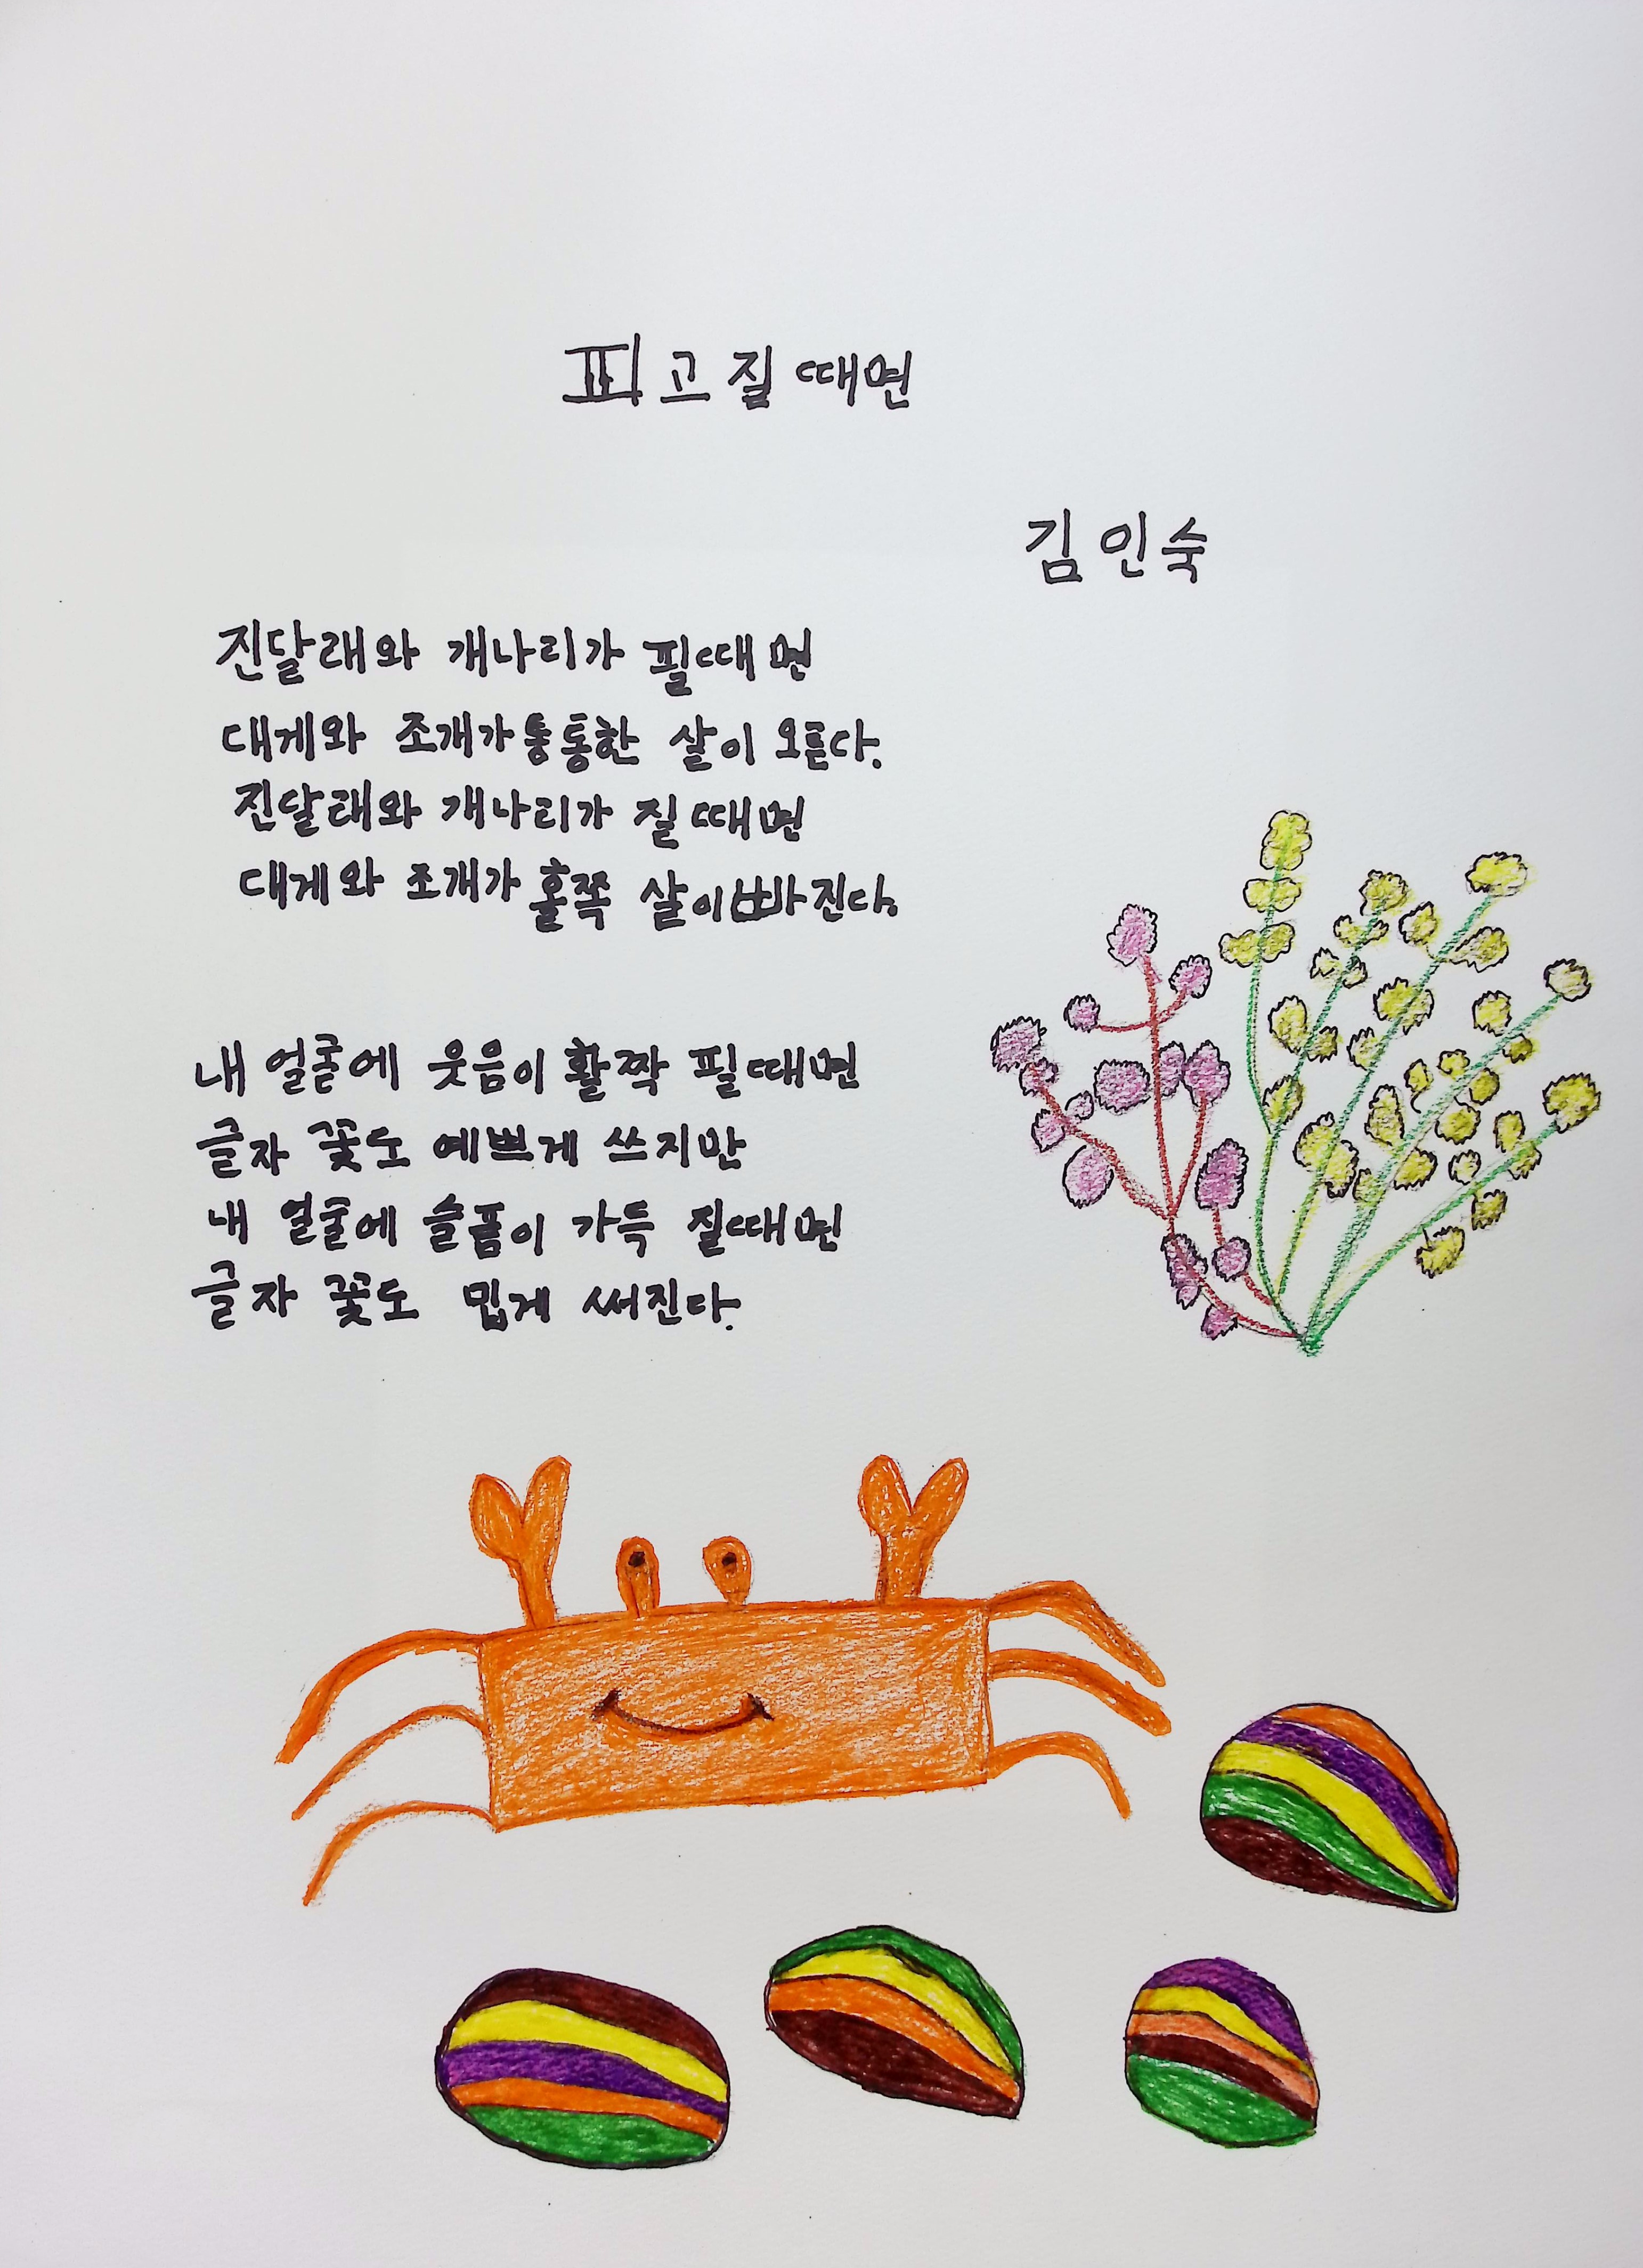 피고 질 때면
김인숙
진달래와 개나리가 필때면
대게와 조개가 통통한 살이 오른다.
진달래와 개나리가 질때면
대게와 조개가 홀쭉 살이 빠진다.
내 얼굴에 웃음이 활짝 필때면
글자 꽃도 예쁘게 쓰지만
내 얼굴에 슬픔이 가득 질때면
글자 꽃도 밉게 써진다.